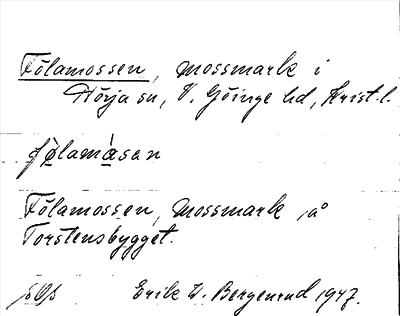 Fölamossen, mossmark i
Hörja sn, V. Göinge hd, Krist. l.
følamåsan
Fölamossen, mossmark på
Torstensbygget.
Erik W. Bergenrud 1947.